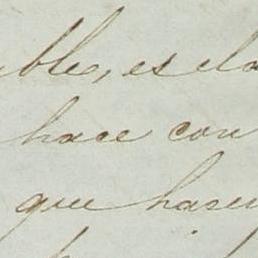 ible, es ela
hace con
que hacen